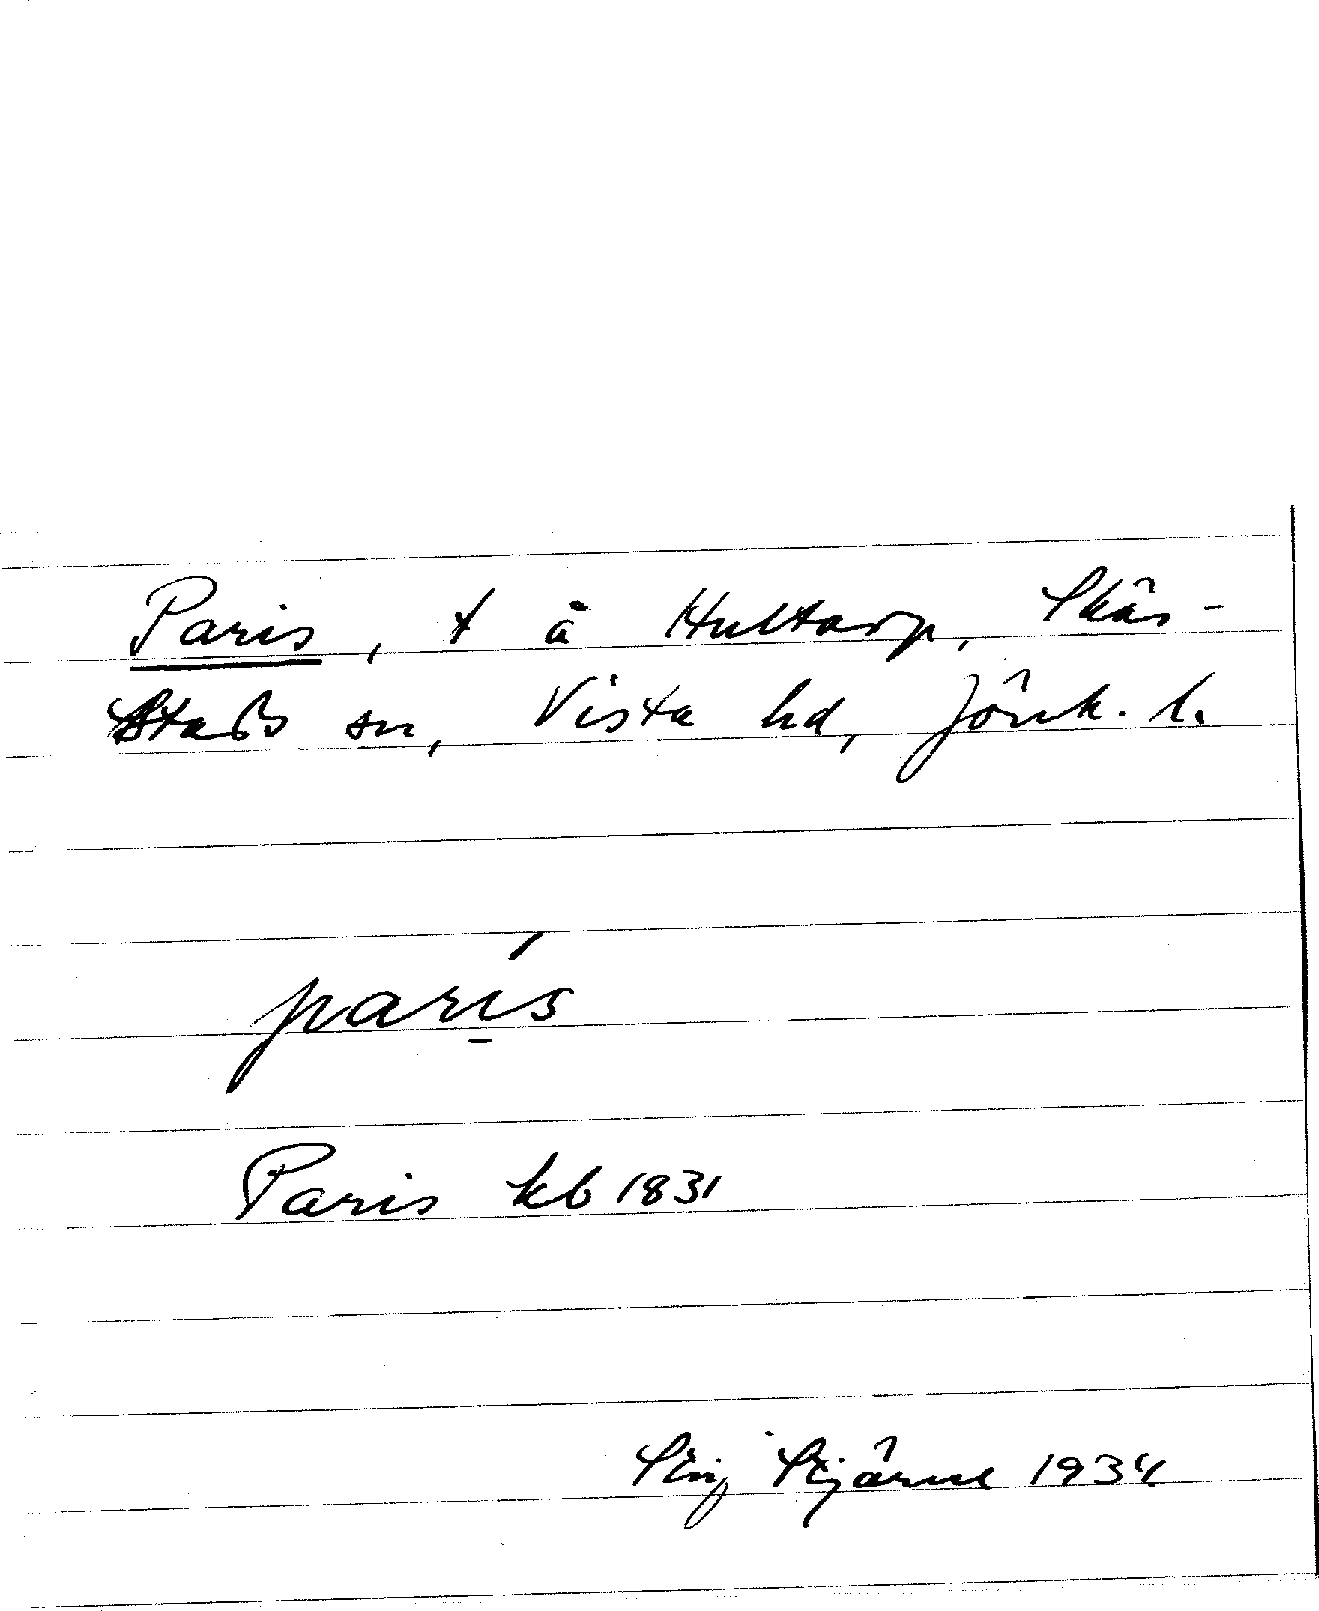 Paris, t å Hultarp, Skär-
stads sn, Vista hd, Jönk. l.
parís
Paris kb 1831
Stig Stjärne 1934